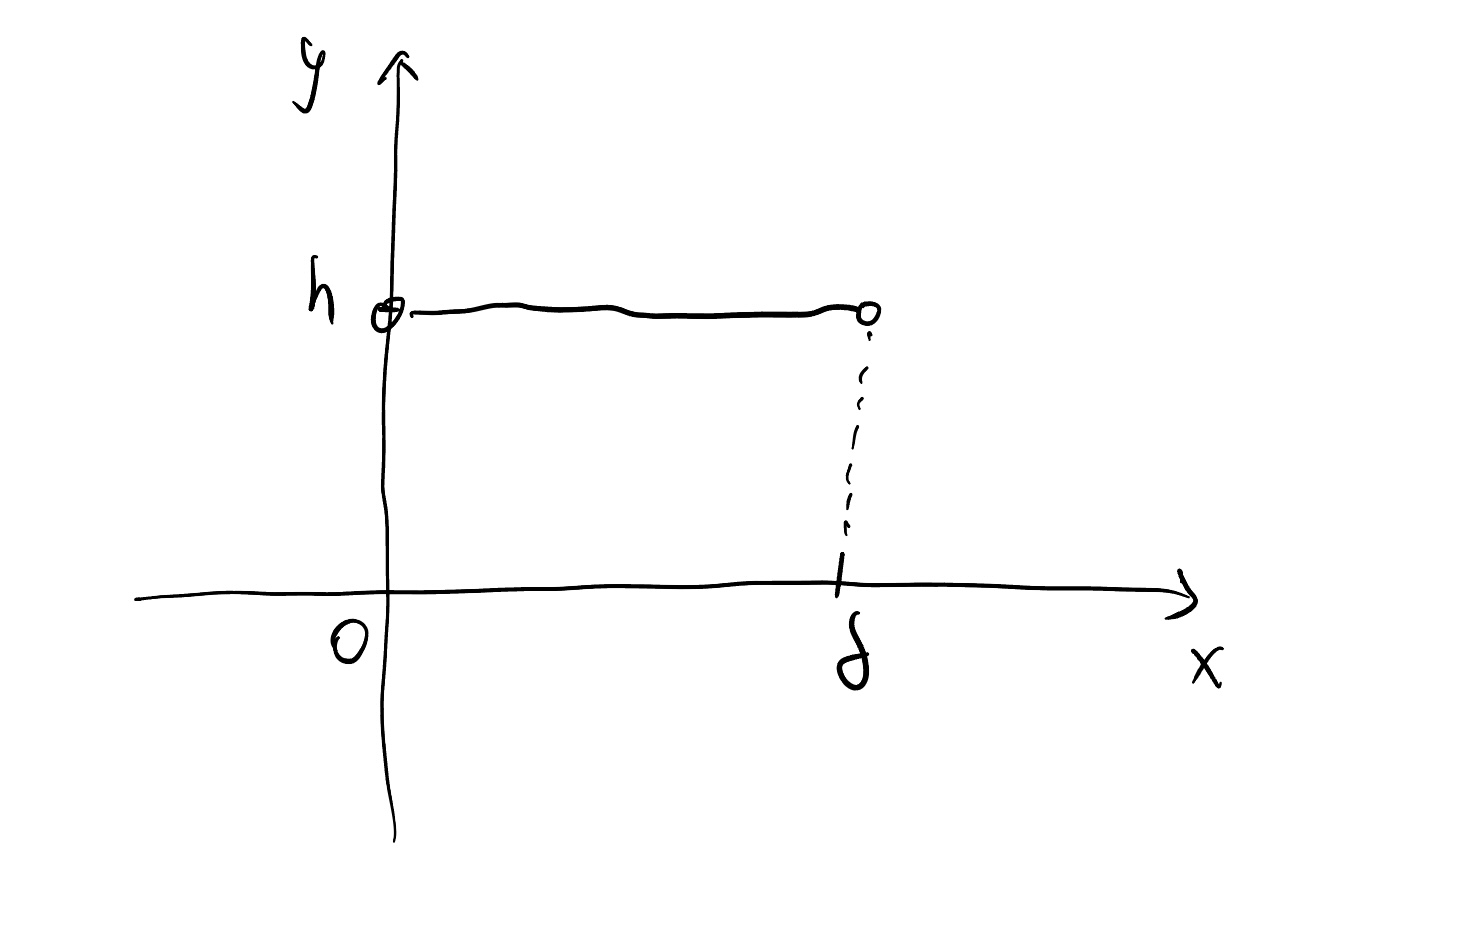 y
h
O
δ
x